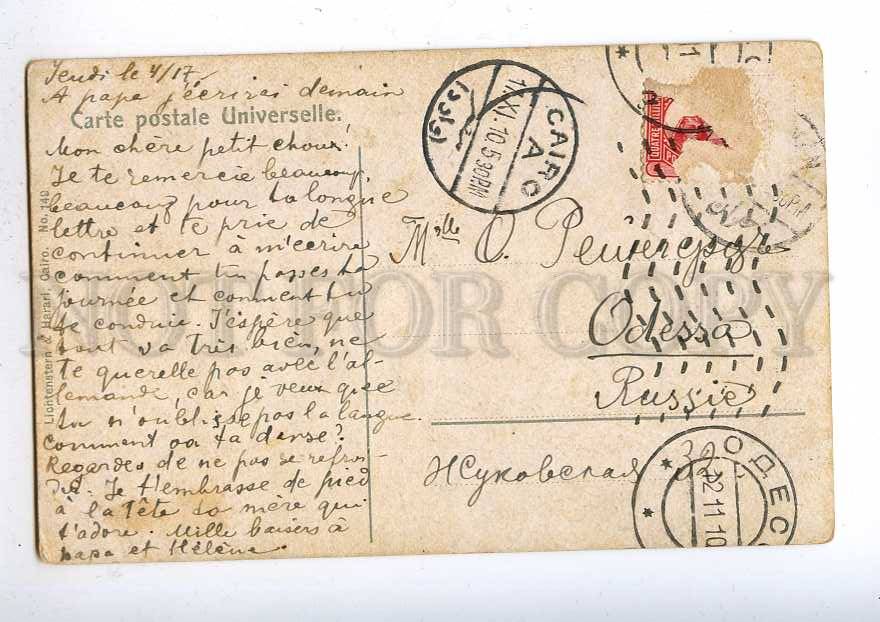 Jeudi le 4/17.
A papa j'écrirai demain
Carte postale Universelle.
Mon chère petit choux!
Je te remercie beaucoup,
beaucoup pour ta longue
lettre et te prie de
continuer à m'écrire
comment tu passes ta
journée et comment tu
te conduie. J'éspère que
tout va très bien, ne
te querelle pas avec l'al-
lemande, car je veux que
tu n'oublisse pas la langue.
Comment va ta danse?
Regardes de ne pas se refroi-
dir. Je t'embrasse de pied
à la tête ta mère qui
t'adore. Mille baisers à
papa et Hélène.
Lichtenstern & Harari, Cairo. No. 149
CAIRO
A
17.XI.10.5 30PM
QUATRE MILL
Mlle O. Рейнгерцъ
Odessa
Russie
Жуковская 32
ОДЕС
22 11 10
NOT FOR COPY